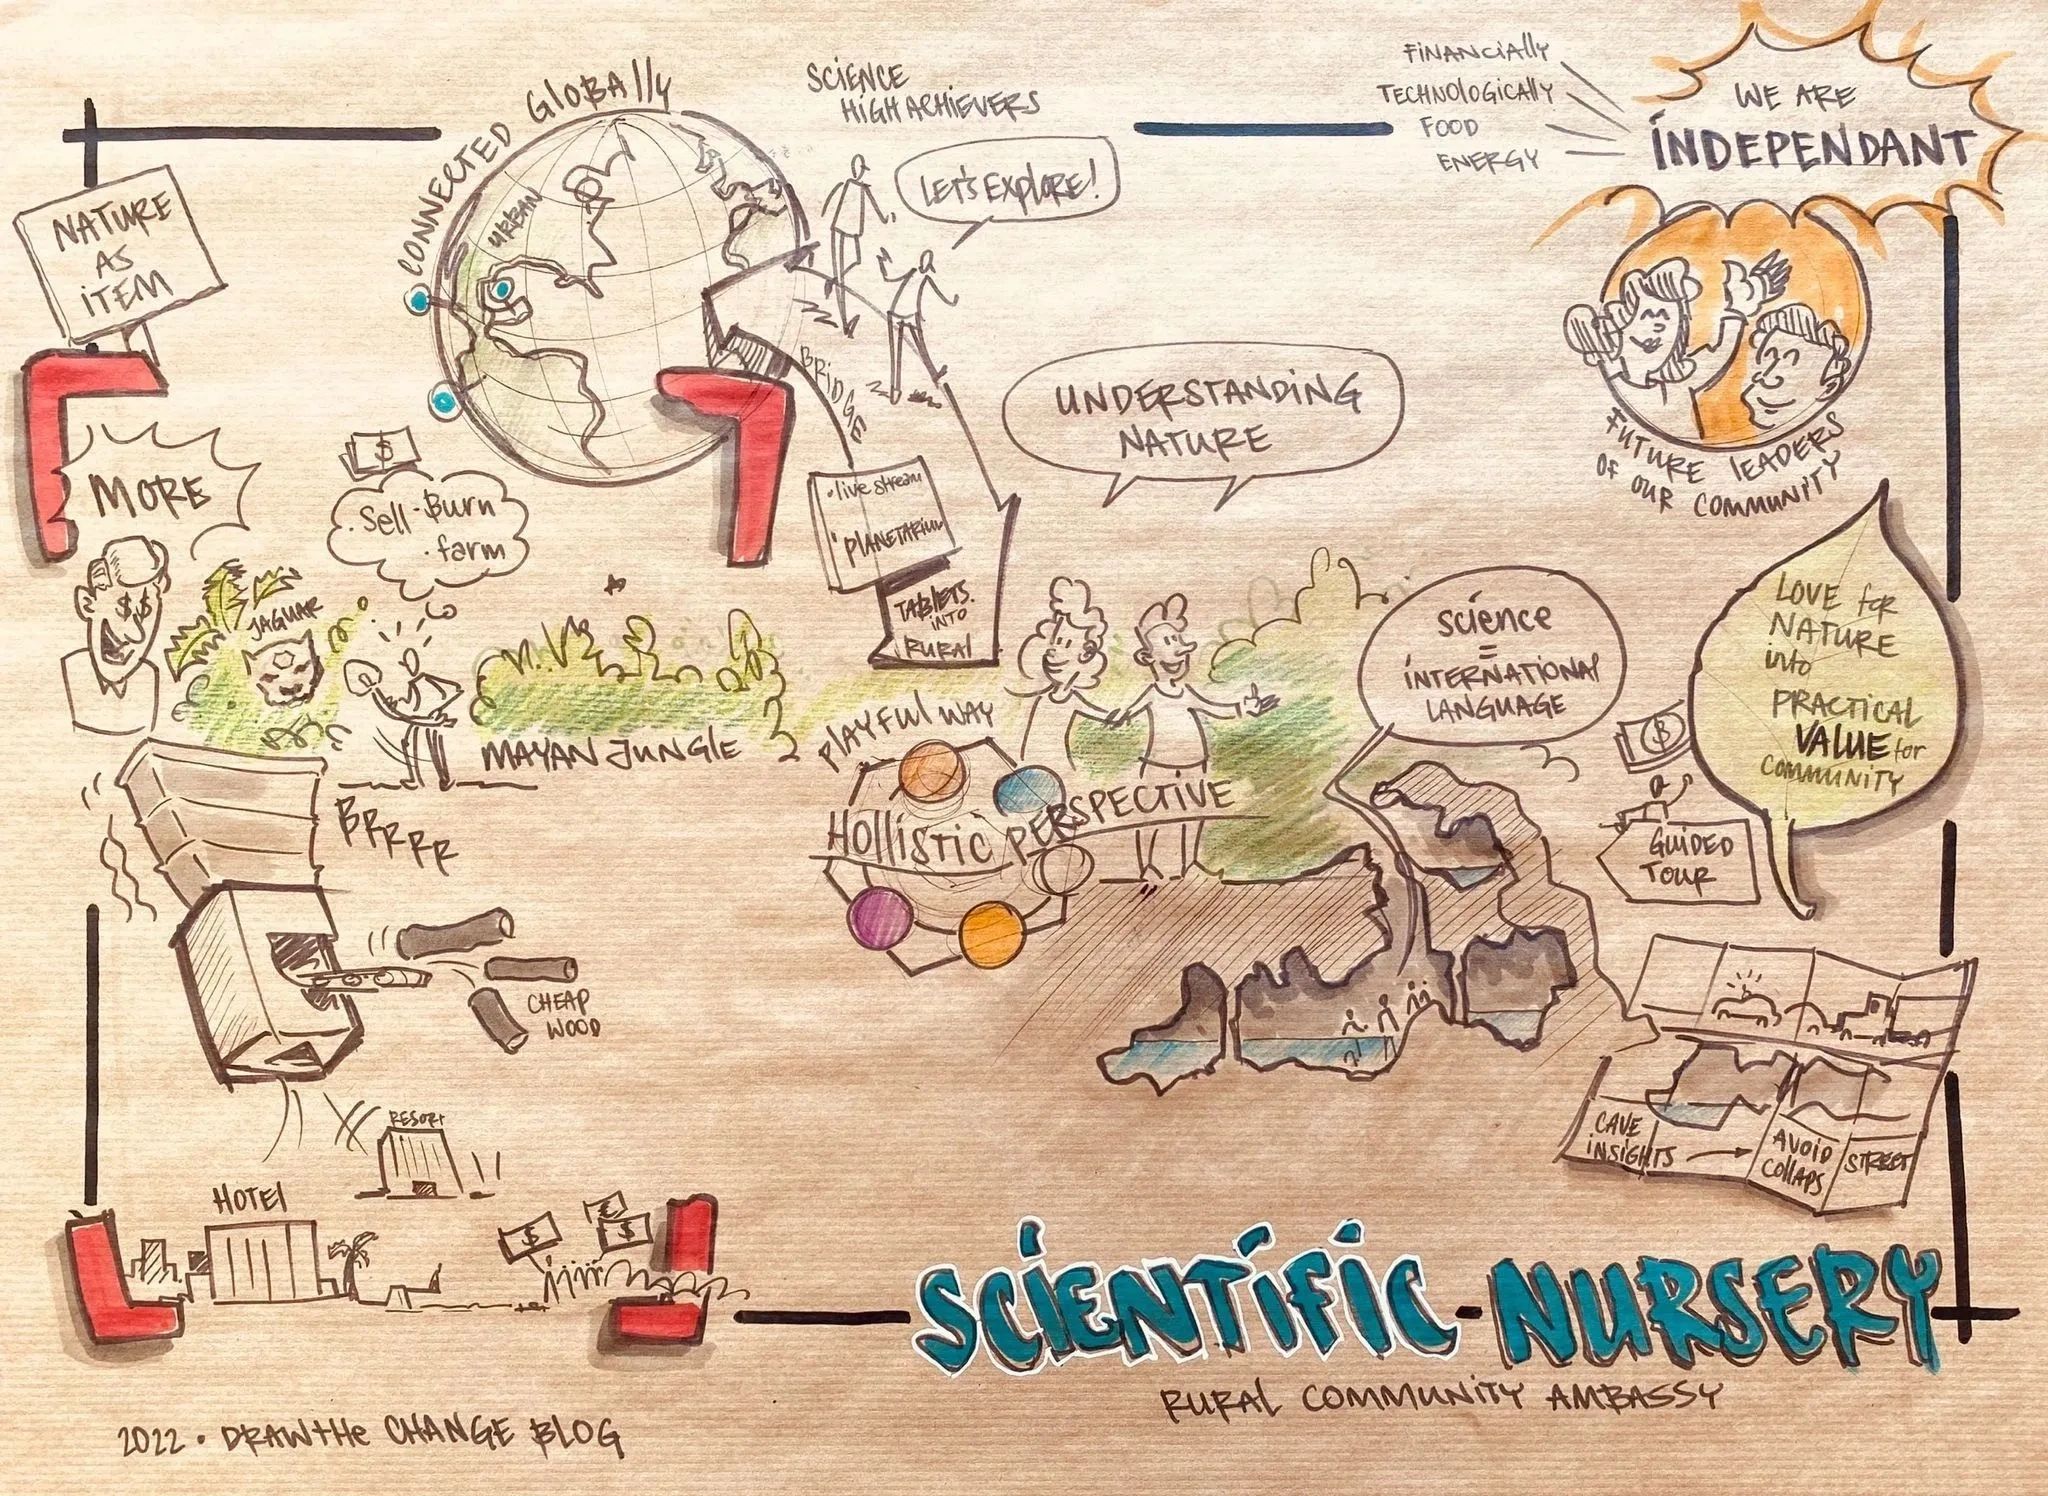 CONNECTED GLOBALLY
URBAN
SCIENCE
HIGH ACHIEVERS
LET'S EXPLORE!
FINANCIALLY
TECHNOLOGICALLY
FOOD
ENERGY
WE ARE
INDEPENDANT
NATURE
AS
ITEM
BRIDGE
UNDERSTANDING
NATURE
FUTURE LEADERS
OF OUR COMMUNITY
MORE
$
· Sell · Burn
· farm
· live stream
· PLANETARIUM
TABLETS
INTO
RURAL
$ $
JAGUAR
MAYAN JUNGLE
PLAYFUL WAY
HOLLISTIC PERSPECTIVE
science
=
INTERNATIONAL
LANGUAGE
LOVE for
NATURE
into
PRACTICAL
VALUE for
COMMUNITY
$
GUIDED
TOUR
BRRRR
CHEAP
WOOD
RESORT
HOTEL
$
€
$
CAVE
INSIGHTS
AVOID
COLLAPS
STREET
SCIENTIFIC-NURSERY
RURAL COMMUNITY AMBASSY
2022 · DRAWTHE CHANGE BLOG